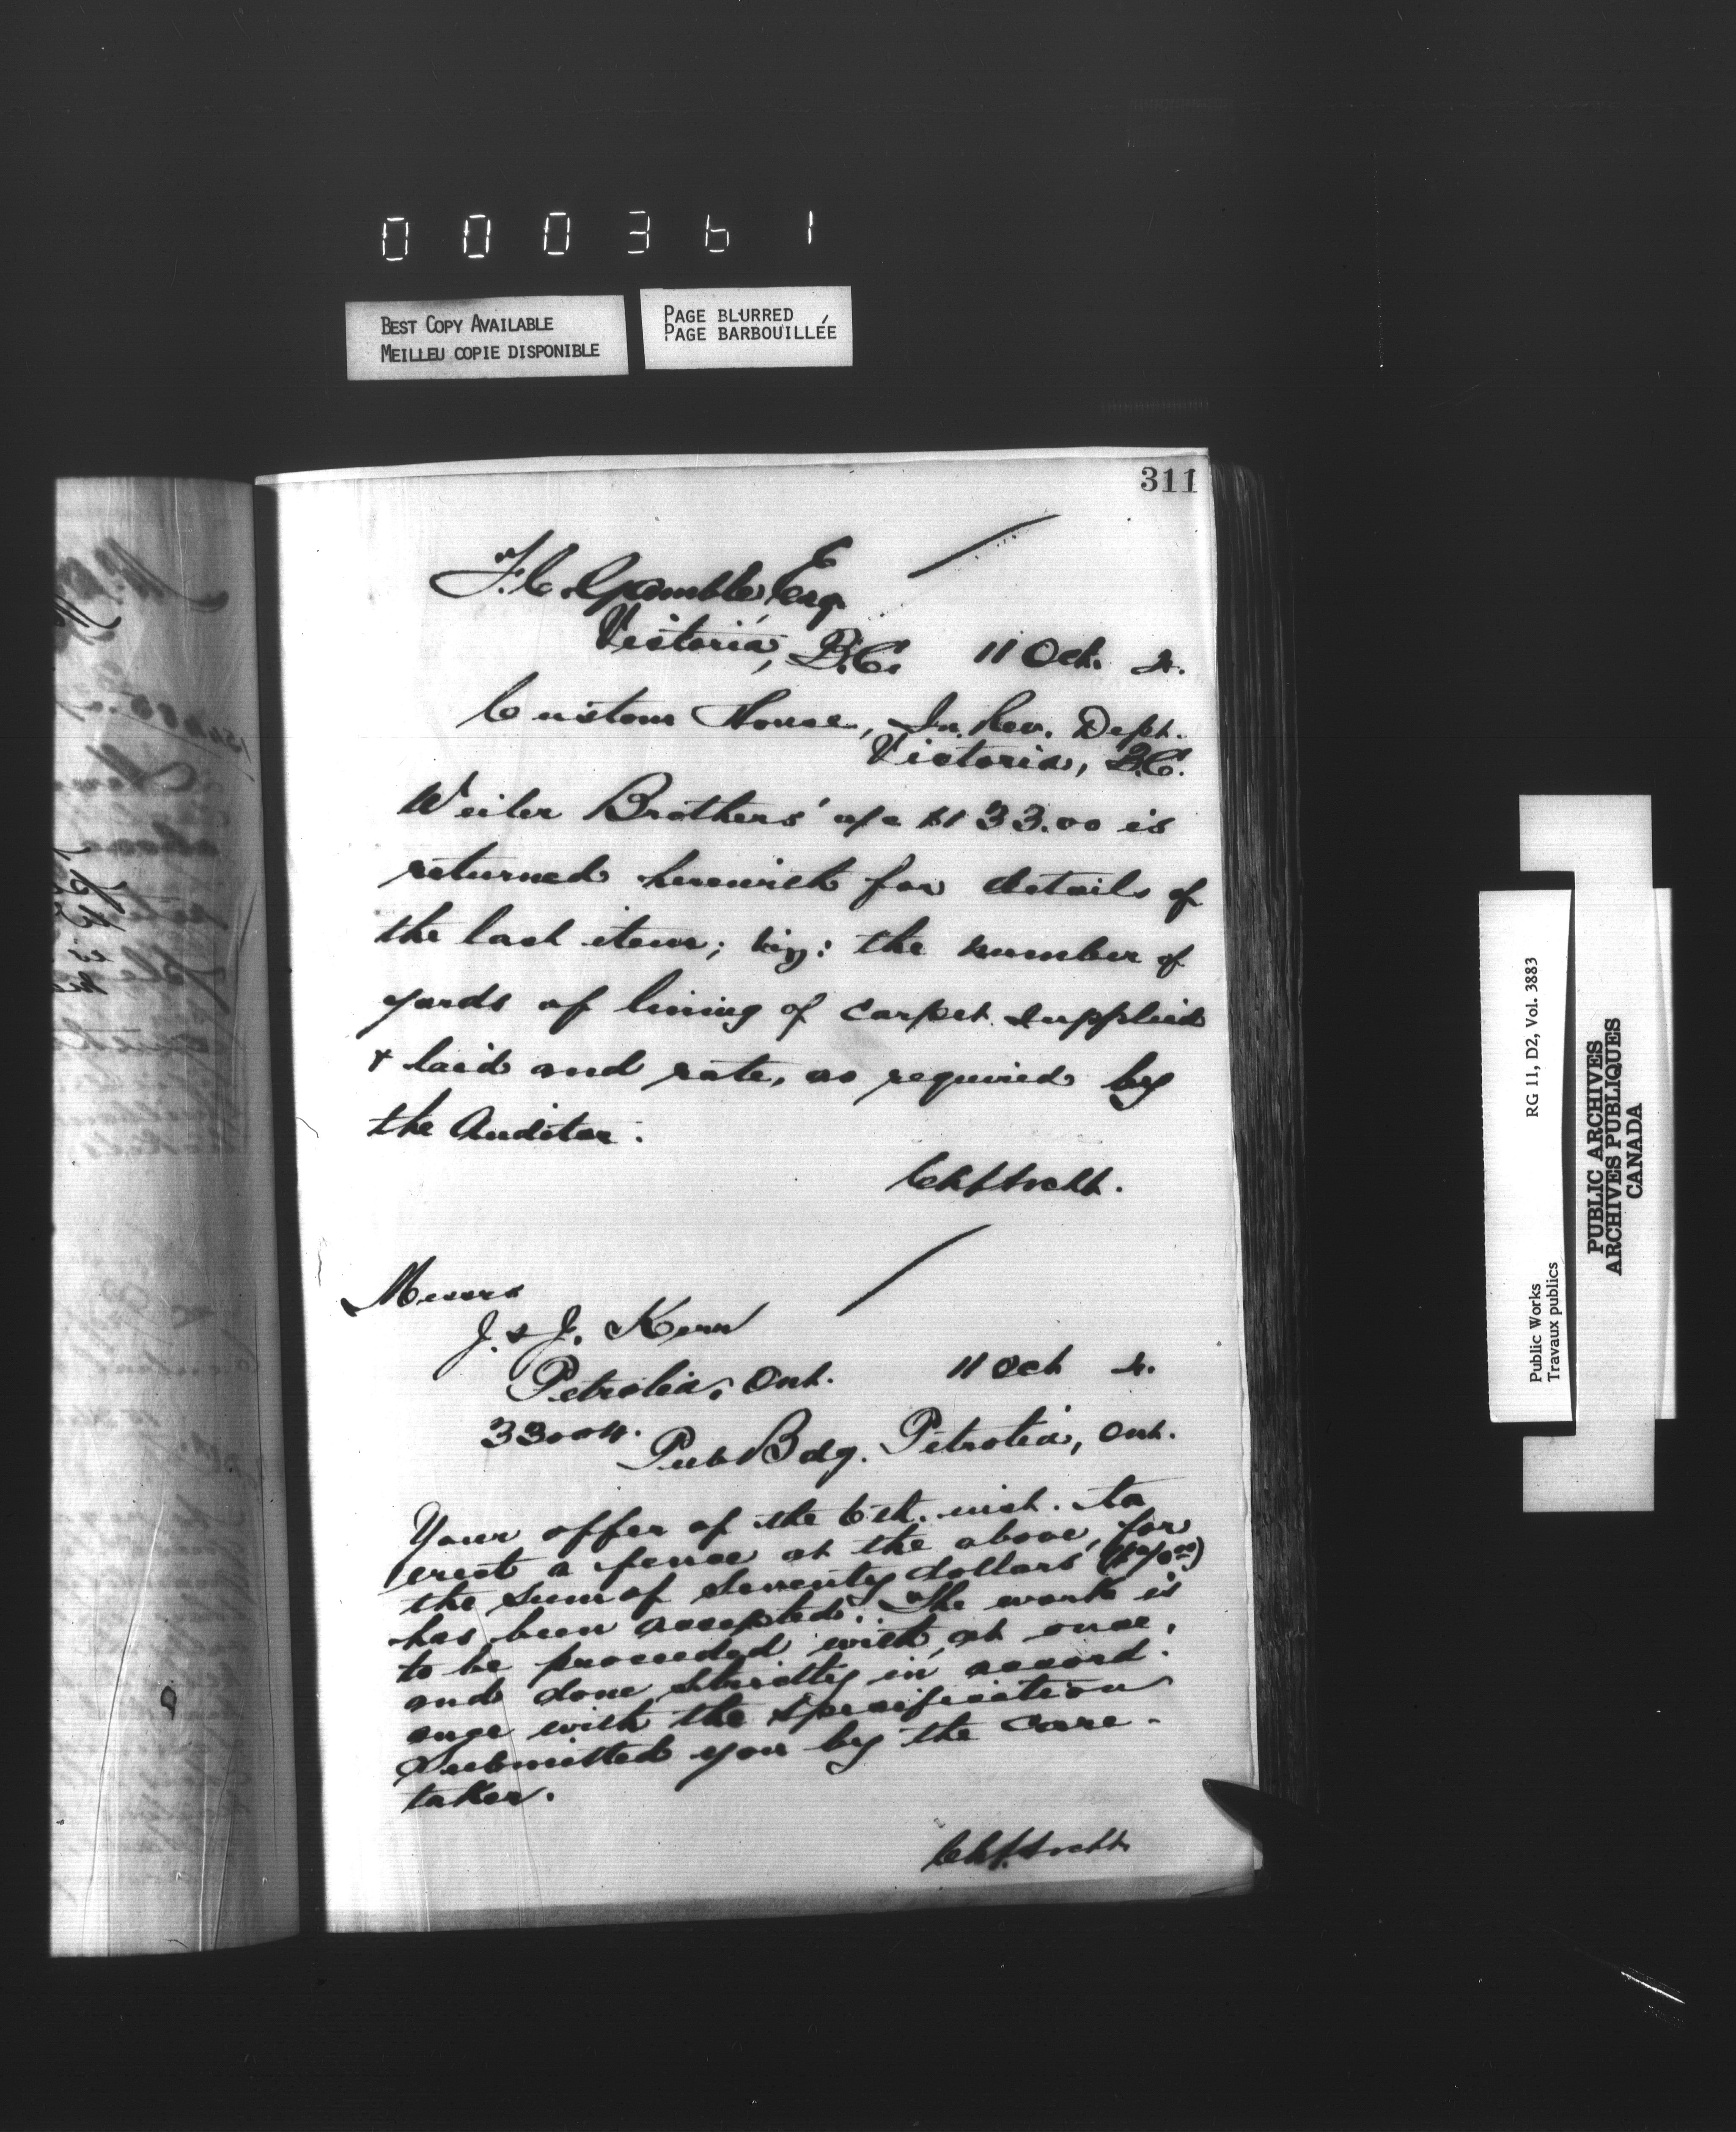 000361
BEST COPY AVAILABLE
MEILLEU COPIE DISPONIBLE
PAGE BLURRED
PAGE BARBOUILLÉE
311
F.C. Gamble, Esq
Victoria, B.C. 11 Oct. 4.
Custom House, In. Rev. Dept.
Victoria, B.C.
Weiler Brothers' a/c $133.00 is
returned herewith for details of
the last item; viz: the number of
yards of lining of carpet supplied
& laid and rate, as required by
the Auditor.
Ch. Archt.
Messrs
J. & J. Kerr
Petrolia, Ont. 11 Oct 4.
33004.
Pub Bdg. Petrolia, Ont.
Your offer of the 6th. inst. to
erect a fence at the above, for
the sum of seventy dollars ($70.00)
has been accepted. The work is
to be proceeded with, at once,
and done strictly in accord-
ance with the specification
submitted you by the care-
taker.
Ch. Archt.
RG 11, D2, Vol. 3883
Public Works
Travaux publics
PUBLIC ARCHIVES
ARCHIVES PUBLIQUES
CANADA